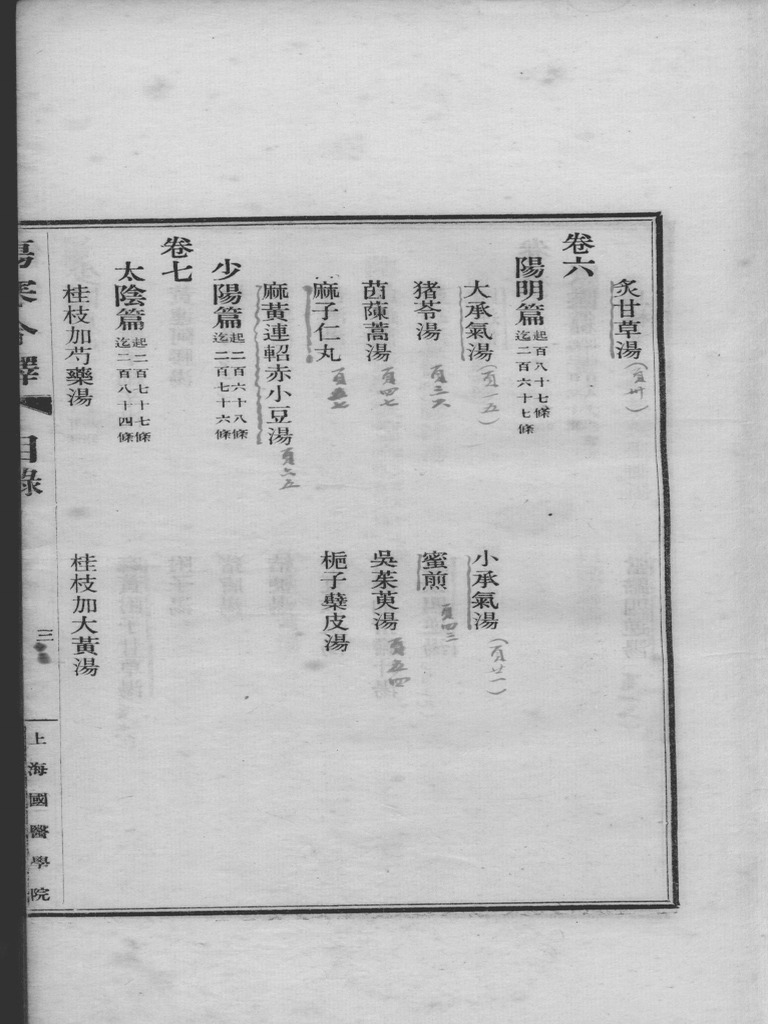 炙甘草湯（頁卅一）
卷六
陽明篇 起百八十七條 迄二百六十七條
大承氣湯（頁一五）
小承氣湯（頁廿一）
猪苓湯 頁三六
蜜煎 頁四三
茵蔯蒿湯 頁四七
吳茱萸湯 頁五四
麻子仁丸 頁五七
梔子蘗皮湯
麻黃連軺赤小豆湯 頁六五
少陽篇 起二百六十八條 迄二百七十六條
卷七
太陰篇 起二百七十七條 迄二百八十四條
桂枝加芍藥湯
桂枝加大黃湯
傷寒今釋 目錄
三
上海國醫學院